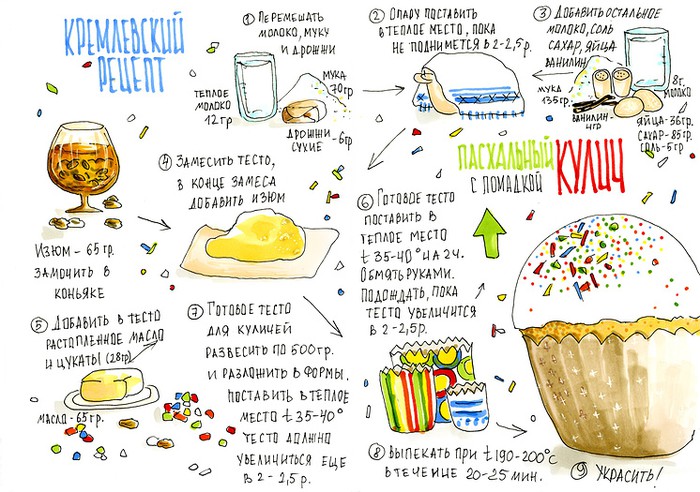 КРЕМЛЕВСКИЙ
РЕЦЕПТ
① ПЕРЕМЕШАТЬ
МОЛОКО, МУКУ
И ДРОЖЖИ
ТЕПЛОЕ
МОЛОКО
12 ГР
МУКА
70 ГР
ДРОЖЖИ
СУХИЕ -6ГР
② ОПАРУ ПОСТАВИТЬ
В ТЕПЛОЕ МЕСТО, ПОКА
НЕ ПОДНИМЕТСЯ В 2-2,5 Р.
③ ДОБАВИТЬ ОСТАЛЬНОЕ
МОЛОКО, СОЛЬ
САХАР, ЯЙЦА
ВАНИЛИН
МУКА
135ГР.
8Г.
МОЛОКО
ВАНИЛИН-
4ГР
ЯЙЦА-36ГР.
САХАР-85ГР.
СОЛЬ-5ГР
ПАСХАЛЬНЫЙ
С ПОМАДКОЙ
КУЛИЧ
ИЗЮМ - 65 ГР.
ЗАМОЧИТЬ В
КОНЬЯКЕ
④ ЗАМЕСИТЬ ТЕСТО,
В КОНЦЕ ЗАМЕСА
ДОБАВИТЬ ИЗЮМ
⑤ ДОБАВИТЬ В ТЕСТО
РАСТОПЛЕННОЕ МАСЛО
И ЦУКАТЫ (28ГР)
МАСЛО-65ГР.
⑥ ГОТОВОЕ ТЕСТО
ПОСТАВИТЬ В
ТЕПЛОЕ МЕСТО
t 35-40° НА 2Ч.
ОБМЯТЬ РУКАМИ.
ПОДОЖДАТЬ, ПОКА
ТЕСТО УВЕЛИЧИТСЯ
В 2-2,5 Р.
⑦ ГОТОВОЕ ТЕСТО
ДЛЯ КУЛИЧЕЙ
РАЗВЕСИТЬ ПО 500ГР.
И РАЗЛОЖИТЬ В ФОРМЫ.
ПОСТАВИТЬ В ТЕПЛОЕ
МЕСТО t 35-40°
ТЕСТО ДОЛЖНО
УВЕЛИЧИТЬСЯ ЕЩЕ
В 2 - 2,5Р.
⑧ ВЫПЕКАТЬ ПРИ t 190-200°С
В ТЕЧЕНИЕ 20-25 МИН.
⑨ УКРАСИТЬ!